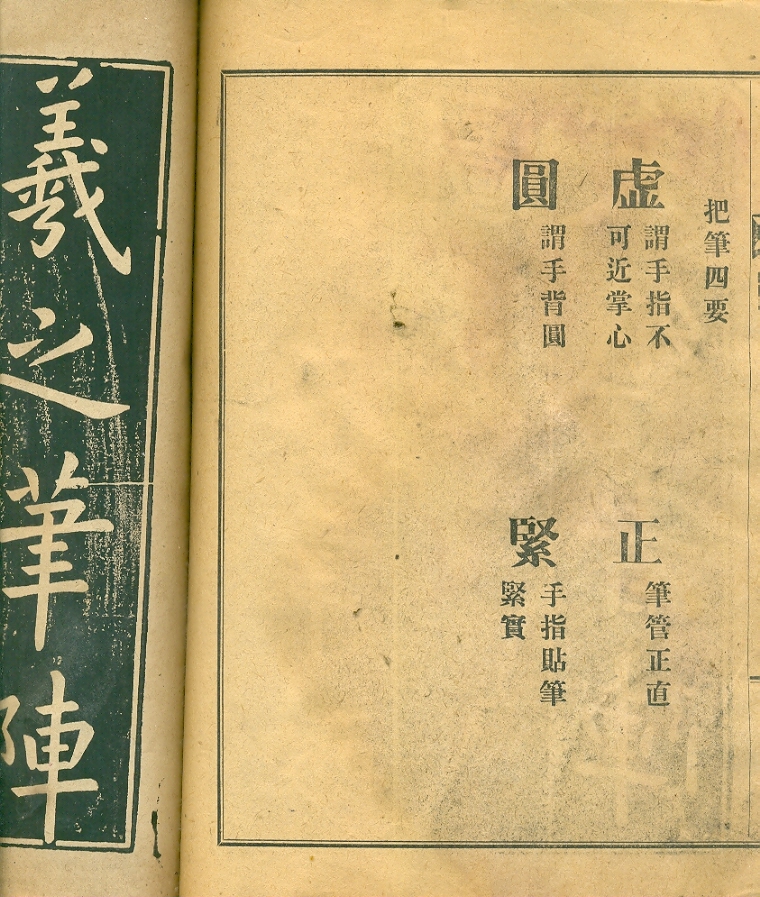 把筆四要
虛
謂手指不
可近掌心
正
筆管正直
圓
謂手背圓
緊
手指貼筆
緊實
羲之筆陣